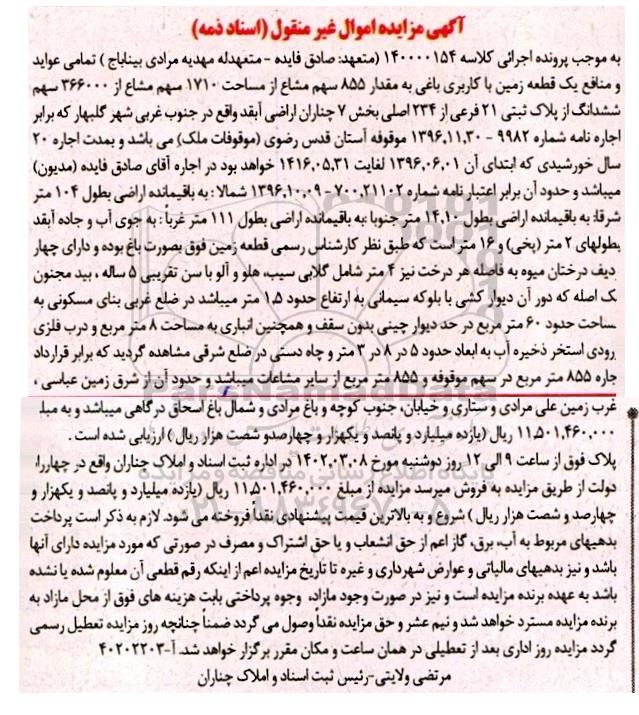 آگهی مزایده اموال غیر منقول (اسناد ذمه)
به موجب پرونده اجرائی کلاسه ۱۴۰۰۰۰۱۵۴ (متعهد: صادق فایده - متعهدله مهدیه مرادی بیناباج ) تمامی عواید
و منافع یک قطعه زمین با کاربری باغی به مقدار ۸۵۵ سهم مشاع از مساحت ۱۷۱۰ سهم مشاع از ۳۶۶۰۰۰ سهم
ششدانگ از پلاک ثبتی ۲۱ فرعی از ۲۳۴ اصلی بخش ۷ چناران اراضی آبقد واقع در جنوب غربی شهر گلبهار که برابر
اجاره نامه شماره ۹۹۸۲ - ۱۳۹۶,۱۱,۳۰ موقوفه آستان قدس رضوی (موقوفات ملک) می باشد و بمدت اجاره ۲۰
سال خورشیدی که ابتدای آن ۱۳۹۶,۰۶,۰۱ لغایت ۱۴۱۶,۰۵,۳۱ خواهد بود در اجاره آقای صادق فایده (مدیون)
میباشد و حدود آن برابر اعتبار نامه شماره ۷۰۰,۲۱۱۰۲ - ۱۳۹۶,۱۰,۰۹ شمالا : به باقیمانده اراضی بطول ۱۰۴ متر
شرقا: به باقیمانده اراضی بطول ۱۴,۱۰ متر جنوبا :به باقیمانده اراضی بطول ۱۱۱ متر غرباً : به جوی آب و جاده آبقد
بطولهای ۲ متر (پخی) و ۱۶ متر است که طبق نظر کارشناس رسمی قطعه زمین فوق بصورت باغ بوده و دارای چهار
دیف درختان میوه به فاصله هر درخت نیز ۴ متر شامل گلابی سیب، هلو و آلو با سن تقریبی ۵ ساله ، بید مجنون
یک اصله که دور آن دیوار کشی با بلوکه سیمانی به ارتفاع حدود ۱,۵ متر میباشد در ضلع غربی بنای مسکونی به
مساحت حدود ۶۰ متر مربع در حد دیوار چینی بدون سقف و همچنین انباری به مساحت ۸ متر مربع و درب فلزی
رودی استخر ذخیره آب به ابعاد حدود ۵ در ۸ در ۳ متر و چاه دستی در ضلع شرقی مشاهده گردید که برابر قرارداد
جاره ۸۵۵ متر مربع در سهم موقوفه و ۸۵۵ متر مربع از سایر مشاعات میباشد و حدود آن از شرق زمین عباسی ،
غرب زمین علی مرادی و ستاری و خیابان، جنوب کوچه و باغ مرادی و شمال باغ اسحاق درگاهی میباشد و به مبلغ
۱۱,۵۰۱,۴۶۰,۰۰۰ ریال (یازده میلیارد و پانصد و یکهزار و چهارصدو شصت هزار ریال ) ارزیابی شده است .
پلاک فوق از ساعت ۹ الی ۱۲ روز دوشنبه مورخ ۱۴۰۲,۰۳,۰۸ در اداره ثبت اسناد و املاک چناران واقع در چهارراه
دولت از طریق مزایده به فروش میرسد مزایده از مبلغ ۱۱,۵۰۱,۴۶۰,۰۰۰ ریال (یازده میلیارد و پانصد و یکهزار و
چهارصد و شصت هزار ریال ) شروع و به بالاترین قیمت پیشنهادی نقداً فروخته می شود. لازم به ذکر است پرداخت
بدهیهای مربوط به آب، برق، گاز اعم از حق انشعاب و یا حق اشتراک و مصرف در صورتی که مورد مزایده دارای آنها
باشد و نیز بدهیهای مالیاتی و عوارض شهرداری و غیره تا تاریخ مزایده اعم از اینکه رقم قطعی آن معلوم شده یا نشده
باشد به عهده برنده مزایده است و نیز در صورت وجود مازاد، وجوه پرداختی بابت هزینه های فوق از محل مازاد به
برنده مزایده مسترد خواهد شد و نیم عشر و حق مزایده نقداً وصول می گردد ضمناً چنانچه روز مزایده تعطیل رسمی
گردد مزایده روز اداری بعد از تعطیلی در همان ساعت و مکان مقرر برگزار خواهد شد. آ-۴۰۲۰۲۲۰۳
مرتضی ولایتی-رئیس ثبت اسناد و املاک چناران